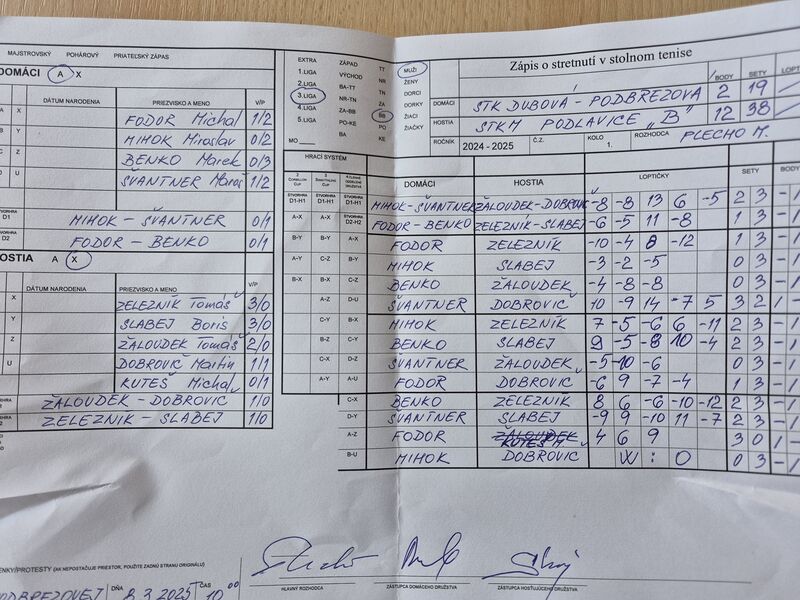 MAJSTROVSKÝ POHÁROVÝ PRIATEĽSKÝ ZÁPAS
DOMÁCI A X
DÁTUM NARODENIA PRIEZVISKO A MENO V/P
X FODOR Michal 1/2
MIHOK Miroslav 0/2
BENKO Marek 0/3
ŠVANTNER Maroš 1/2
D1 MIHOK - ŠVANTNER 0/1
D2 FODOR - BENKO 0/1
OSTIA A X
DÁTUM NARODENIA PRIEZVISKO A MENO V/P
X ZELEZNÍK Tomáš 3/0
Y SLABEJ Boris 3/0
Z ŽALOUDEK Tomáš 2/0
U DOBROVIČ Martin 1/1
KUTEŠ Michal 0/1
ŽALOUDEK - DOBROVIC 1/0
ZELEZNÍK - SLABEJ 1/0
EXTRA ZÁPAD TT MUŽI
1.LIGA VÝCHOD NR ŽENY
2.LIGA BA-TT TN DORCI
3.LIGA NR-TN ZA DORKY
4.LIGA ZA-BB BB ŽIACI
5.LIGA PO-KE PO ŽIAČKY
MO BA KE
Zápis o stretnutí v stolnom tenise
BODY SETY LOPT
DOMÁCI STK DUBOVÁ - PODBREZOVÁ 2 19
HOSTIA STKM PODLAVICE "B" 12 38
ROČNÍK 2024 - 2025 Č.Z. KOLO 1. ROZHODCA PLECHO M.
HRACÍ SYSTÉM
DOMÁCI HOSTIA LOPTIČKY SETY BODY
D1-H1 D1-H1 D1-H1 MIHOK-ŠVANTNER ŽALOUDEK-DOBROVIC -8 -8 13 6 -5 2 3 -
A-X D2-H2 FODOR-BENKO ZELEZNÍK-SLABEJ -6 -5 11 -8 1 3 -
B-Y B-Y A-X FODOR ZELEZNÍK -10 -4 8 -12 1 3 -
A-Y C-Z B-Y MIHOK SLABEJ -3 -2 -5 0 3 -
B-X B-X C-Z BENKO ŽALOUDEK -4 -8 -8 0 3 -
A-Z D-U ŠVANTNER DOBROVIČ 10 -9 14 -7 5 3 2 1 -
C-Y B-X MIHOK ZELEZNÍK 7 -5 -6 6 -11 2 3 -
B-Z C-Y BENKO SLABEJ 9 -5 -8 10 -4 2 3 -
C-X D-Z ŠVANTNER ŽALOUDEK -5 -10 -6 0 3 -
A-Y A-U FODOR DOBROVIC -6 9 -7 -4 1 3 -
C-X BENKO ZELEZNÍK 8 6 -6 -10 -12 2 3 -
D-Y ŠVANTNER SLABEJ -9 9 -10 11 -7 2 3 -
A-Z FODOR KUTEŠ M 4 6 9 3 0 1 -
B-U MIHOK DOBROVIC W : O 0 3 -
ENKY/PROTESTY (AK NEPOSTAČUJE PRIESTOR, POUŽITE ZADNÚ STRANU ORIGINÁLU)
PODBREZOVEJ DŇA 8.3.2025 ČAS 10 00
HLAVNÝ ROZHODCA ZÁSTUPCA DOMÁCEHO DRUŽSTVA ZÁSTUPCA HOSŤUJÚCEHO DRUŽSTVA